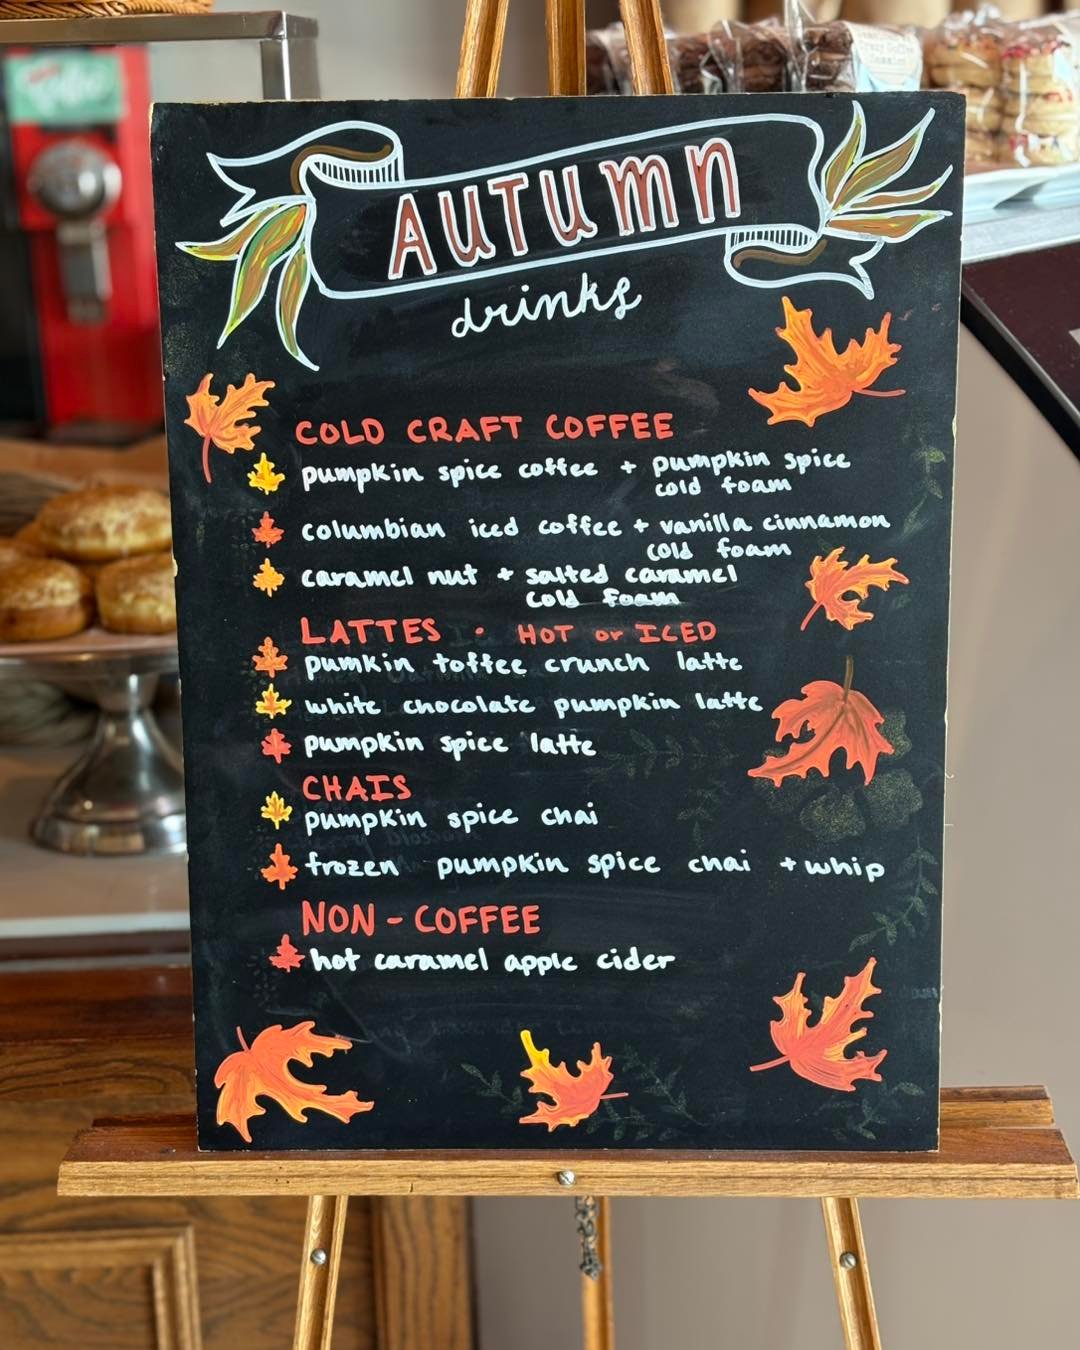 AUTUMN
drinks
COLD CRAFT COFFEE
pumpkin spice coffee + pumpkin spice
cold foam
columbian iced coffee + vanilla cinnamon
cold foam
caramel nut + salted caramel
cold foam
LATTES · HOT or ICED
pumkin toffee crunch latte
white chocolate pumpkin latte
pumpkin spice latte
CHAIS
pumpkin spice chai
frozen pumpkin spice chai + whip
NON-COFFEE
hot caramel apple cider